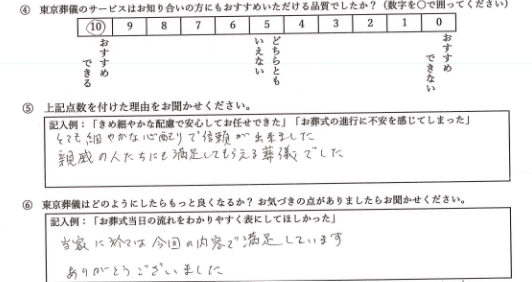 ④ 東京葬儀のサービスはお知り合いの方にもおすすめいただける品質でしたか?(数字を○で囲ってください)
10 9 8 7 6 5 4 3 2 1 0
おすすめできる
どちらともいえない
おすすめできない
⑤ 上記点数を付けた理由をお聞かせください。
記入例:「きめ細やかな配慮で安心してお任せできた」「お葬式の進行に不安を感じてしまった」
とても細やかな心配りで信頼が出来ました
親戚の人たちにも満足してもらえる葬儀でした
⑥ 東京葬儀はどのようにしたらもっと良くなるか?お気づきの点がありましたらお聞かせください。
記入例:「お葬式当日の流れをわかりやすく表にしてほしかった」
当家に於ては今回の内容で満足しています
ありがとうございました